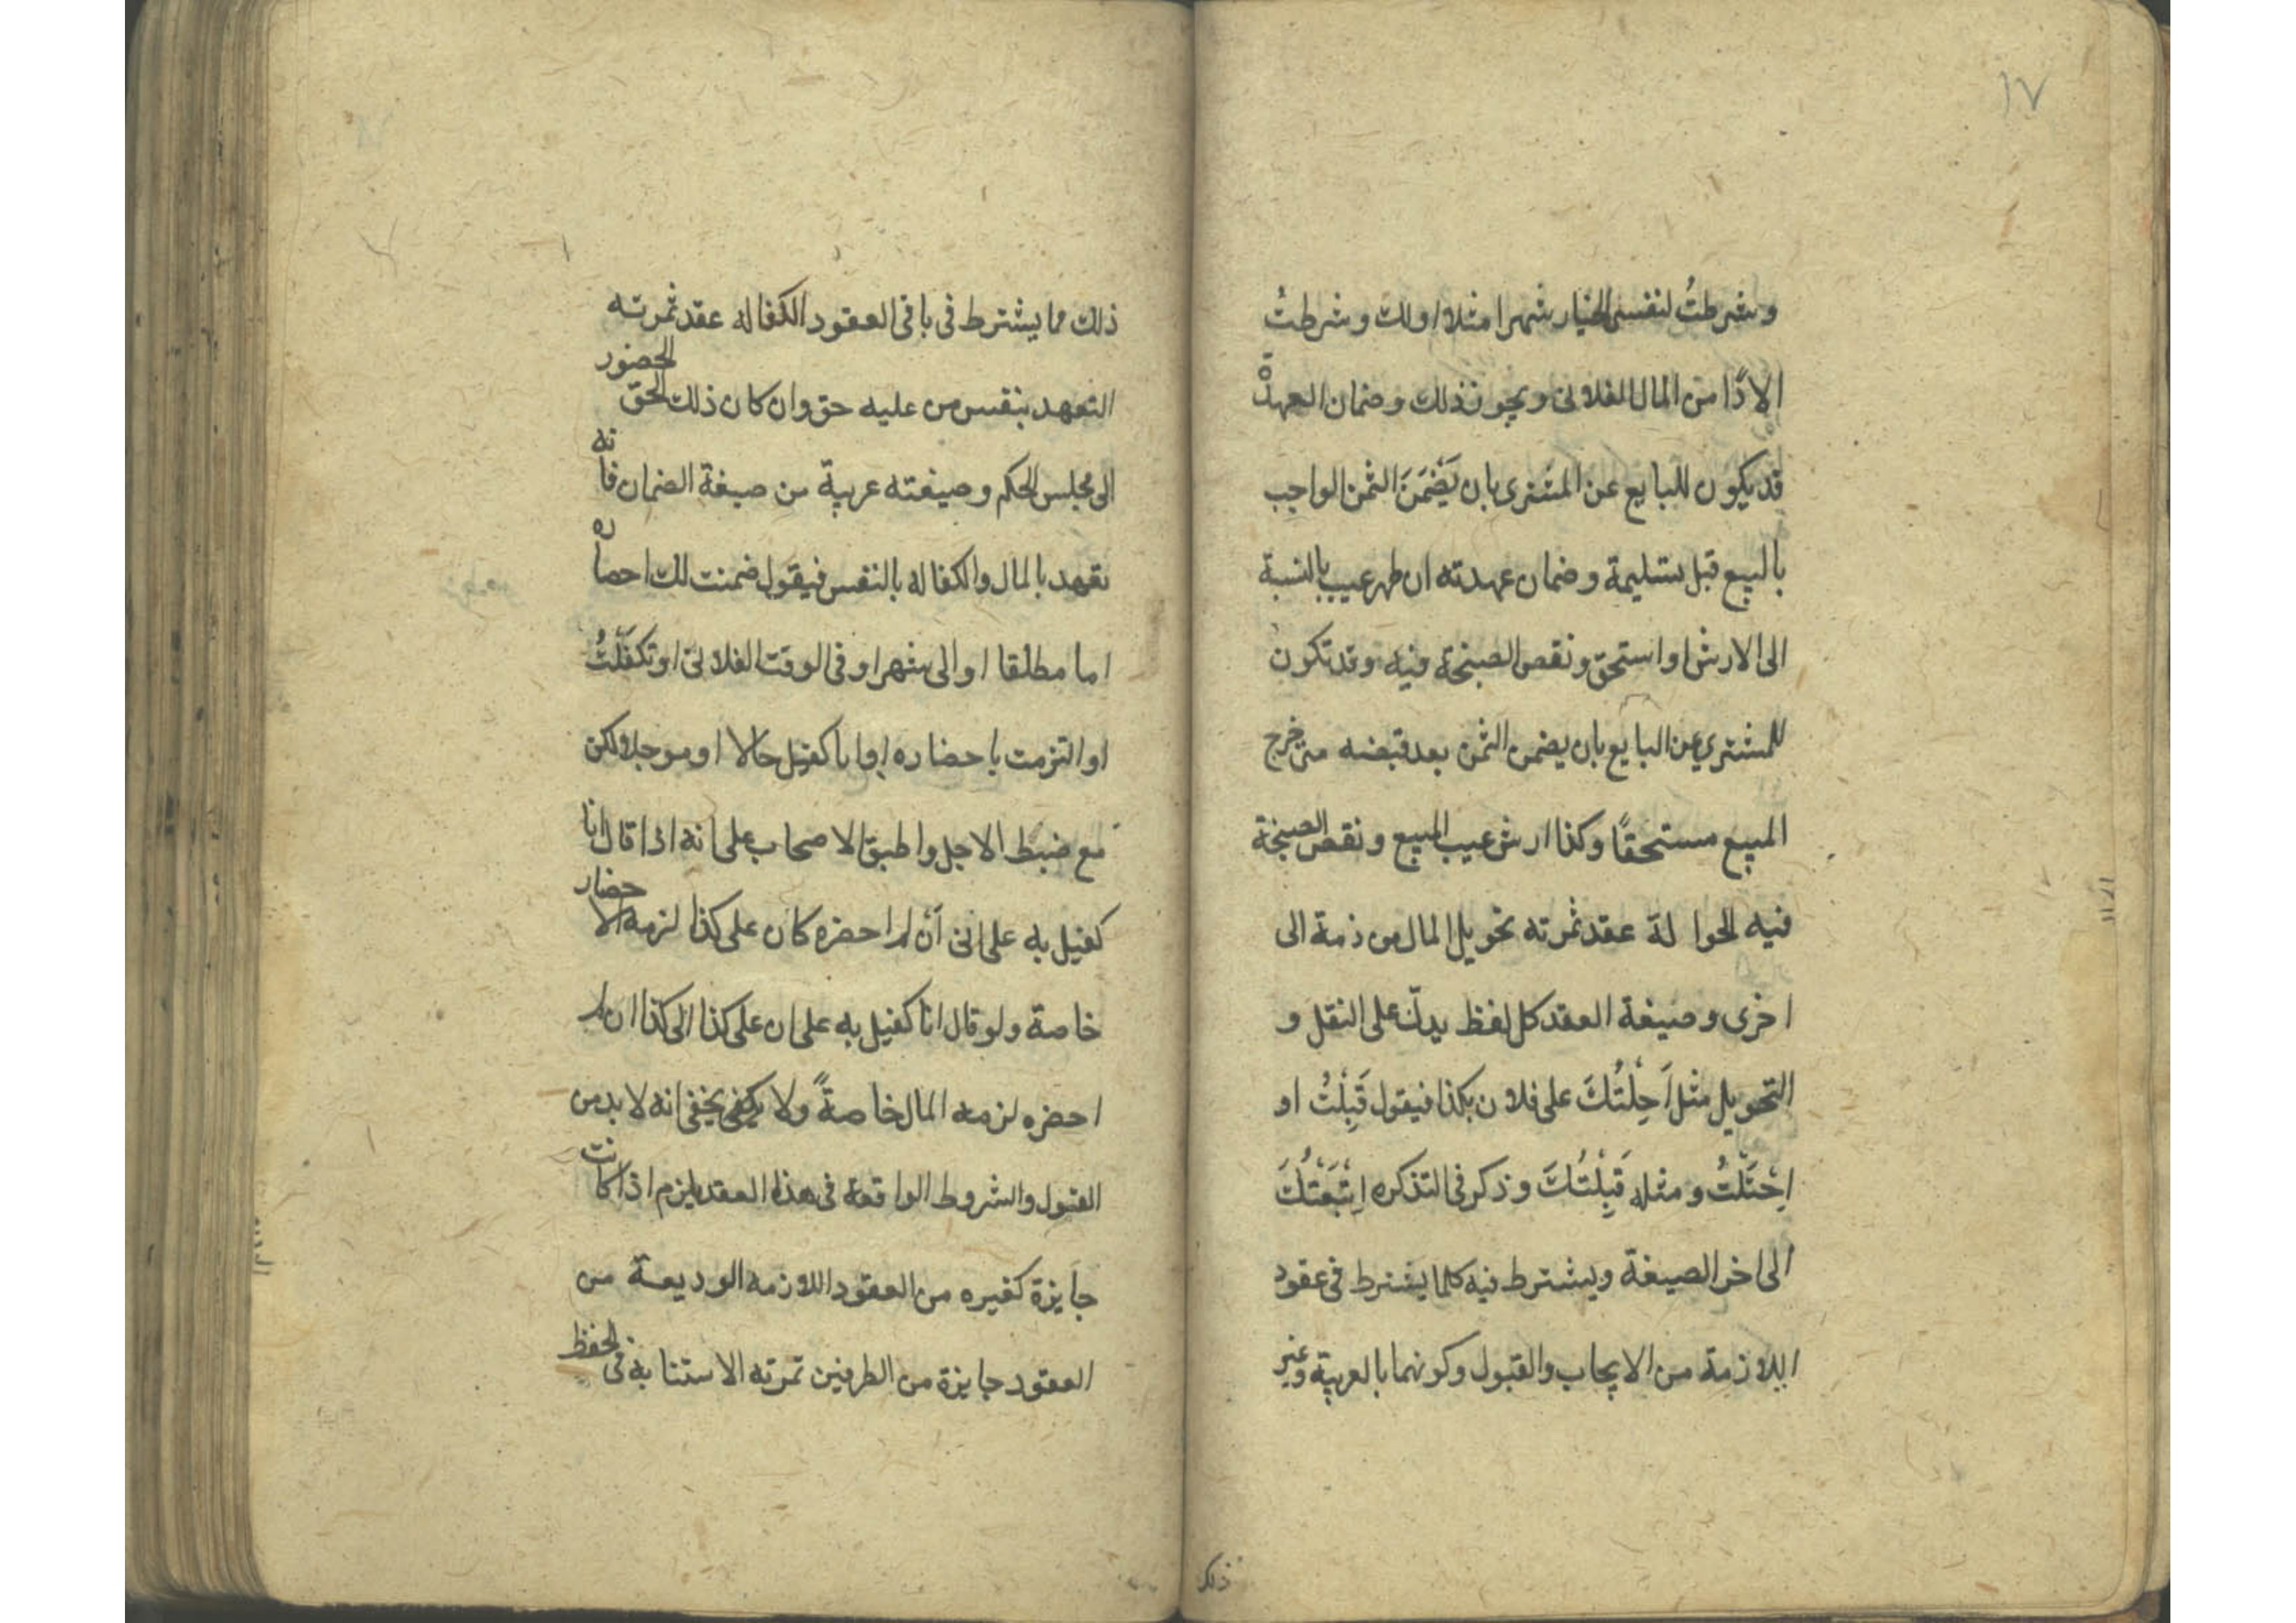 ١٧
وشرطتُ لنفسى الخيار شهرا مثلا او لك وشرطتُ
الاداء من المال الفلانى ويجوز ذلك وضمان العهدة
قد يكون للبايع عن المشترى بان يَضْمَنَ الثمن الواجب
بالبيع قبل تسليمة وضمان عهدته ان ظهر عيب بالنسبة
الى الارش او استحق ونقص الصنجة فيه وقد تكون
للمشترى عن البايع بان يضمن الثمن بعد قبضه متى خرج
المبيع مستحقًا وكذا ارش عيب المبيع ونقص الصنجة
فيه الحوالة عقد ثمرته تحويل المال من ذمة الى
اخرى وصيغة العقد كل لفظ يدلّ على النقل و
التحويل مثل اَحِلْتُكَ على فلان بكذا فيقول قَبِلْتُ او
اِحْتَلْتُ ومثله قَبِلْتُكَ وذكر فى التذكره اِتْبَعْتُكَ
الى اخر الصيغة ويشترط فيه كلما يشترط فى عقود
اللازمة من الايجاب والقبول وكونهما بالعربية وغير
ذلك
ذلك مما يشترط فى باقى العقود الكفاله عقد ثمرته
التعهد بنفس من عليه حق وان كان ذلك الحق الحضور
الى مجلس الحكم وصيغته عربية من صيغة الضمان فانه
تعهد بالمال والكفاله بالنفس فيقول ضمنت لك احضاره
اما مطلقا او الى شهر او فى الوقت الفلانى او تكفّلْتُ
او التزمت باحضاره او انا كفيل حالا او موجل ولكن
مع ضبط الاجل واطبق الاصحاب على انه اذا قال انا
كفيل به على انى اَن لم احضره كان على كذا لزمه الاحضار
خاصة ولو قال انا كفيل به على ان على كذا الى كذا ان لم
احضره لزمه المال خاصةً ولا يخفى انه لابد من
القبول والشروط الواقعة فى هذا العقد يلزم اذا كانت
جايزة كغيره من العقود اللازمه الوديعة من
العقود جايزة من الطرفين ثمرته الاستنابه فى الحفظ